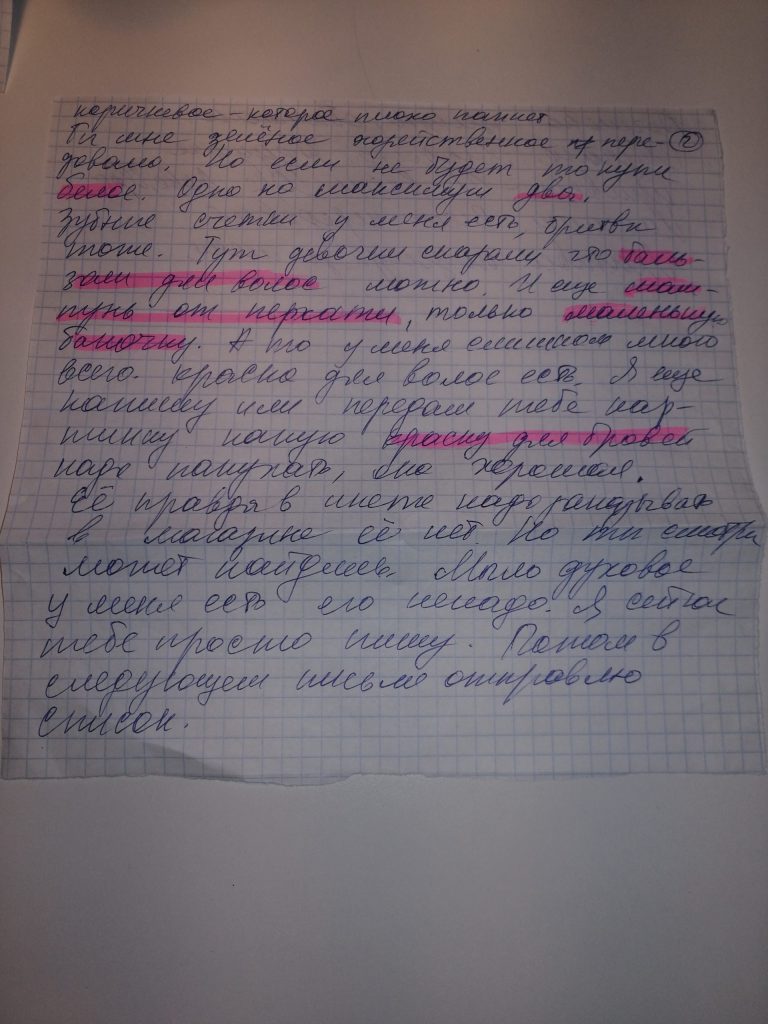 коричневое - которое плохо пахнет.
Ты мне зелёное хозяйственное пере- 2
давала. Но если не будет то купи
белое. Одно но максимум два.
Зубные счетки у меня есть, бритвы
тоже. Тут девочки сказали что баль-
зам для волос можно. И еще шам-
пунь от перхоти, только маленькую
баночку. А то у меня слишком много
всего. Краска для волос есть. Я еще
напишу или передам тебе кар-
тинку какую краску для бровей
надо покупать, она хорошая.
Её правда в инете надо заказывать
в магазине её нет. Но ты смотри
может найдешь. Мыло духовое
у меня есть его ненадо. Я сейчас
тебе просто пишу. Потом в
следующем письме отправлю
список.